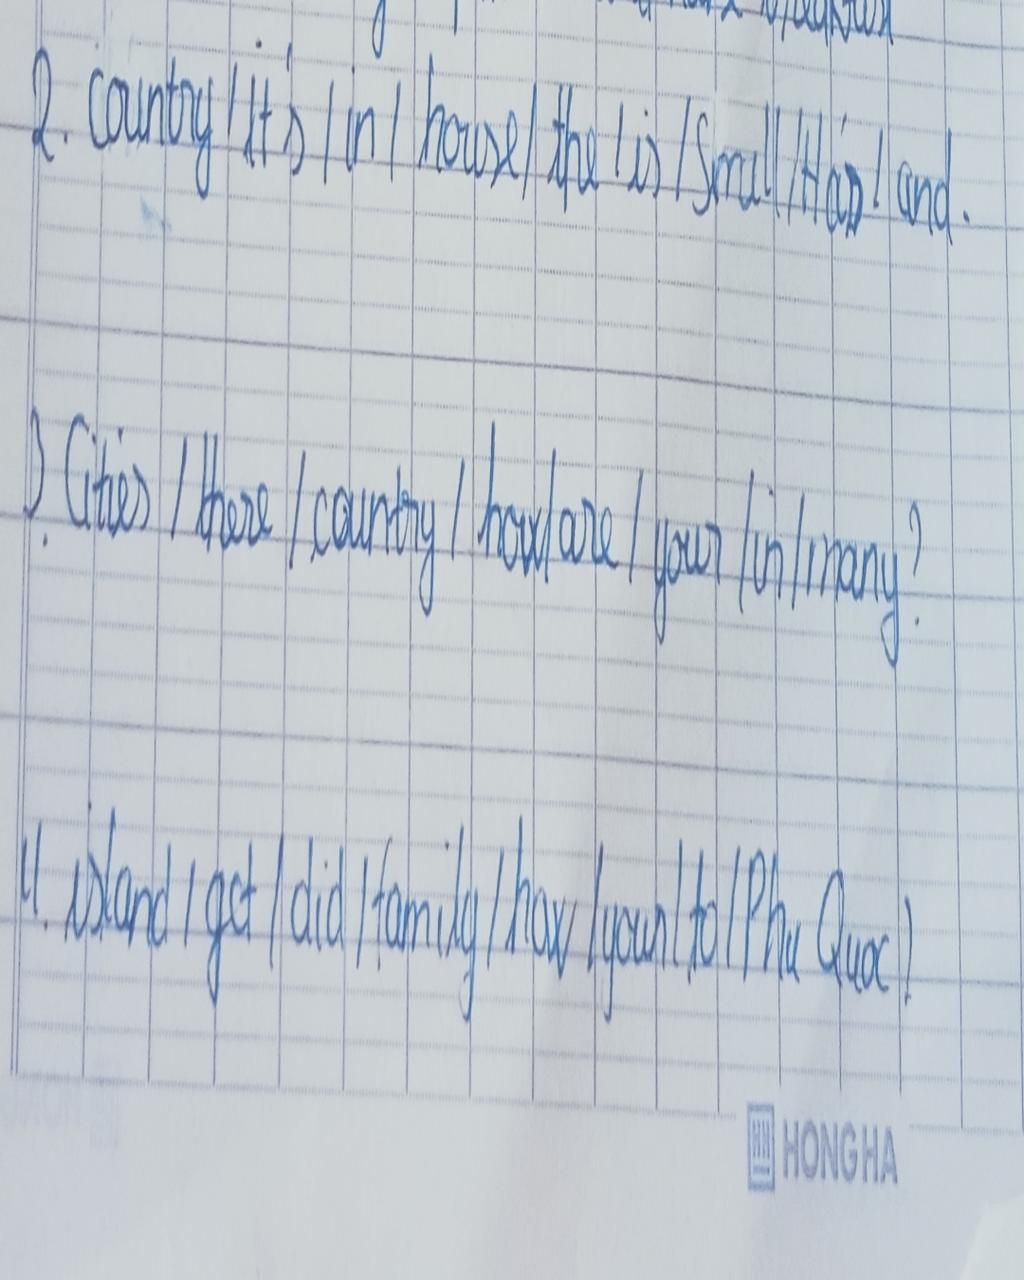 2. country / It's / in / house / the / is / Small / Hạ / and.
Cities / there / country / how / are / your / in / many?
4. island / get / did / family / how / your / to / Phu Quoc?
HONG HA